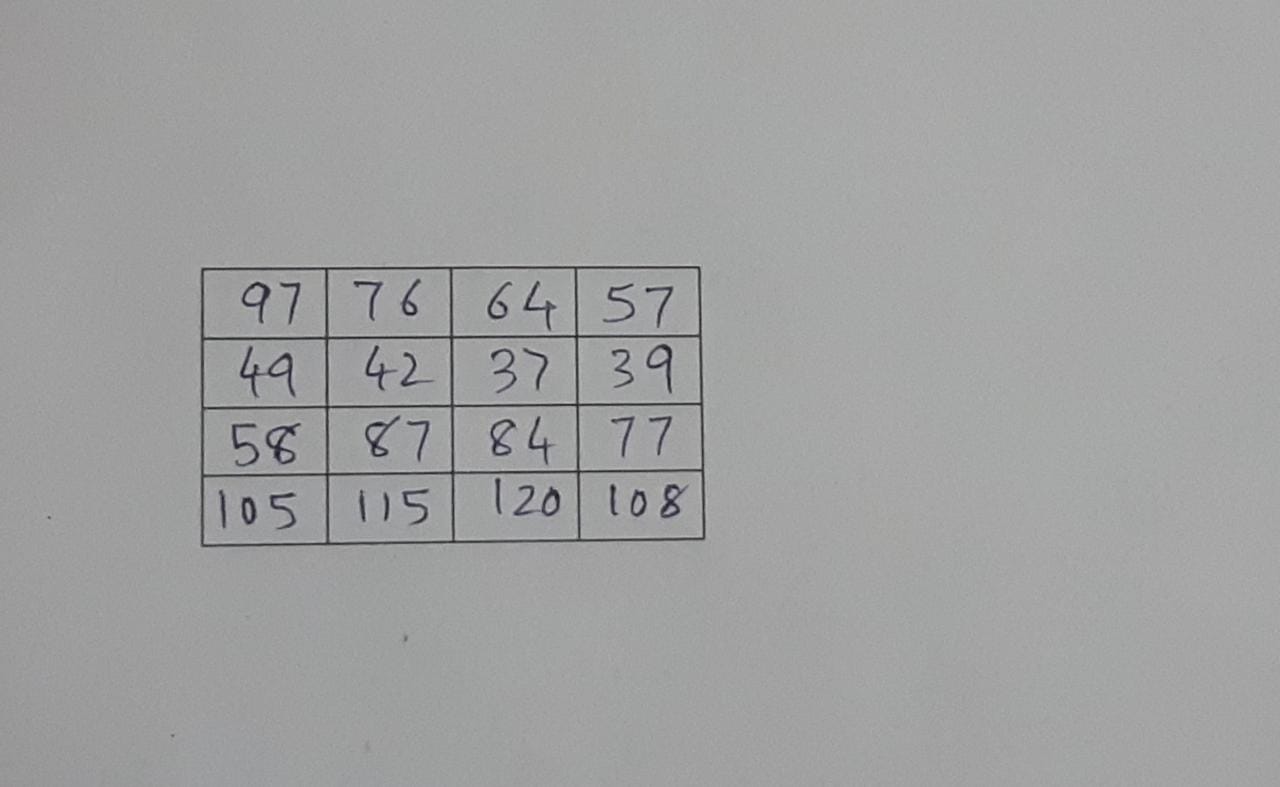 97 76 64 57
49 42 37 39
58 87 84 77
105 115 120 108